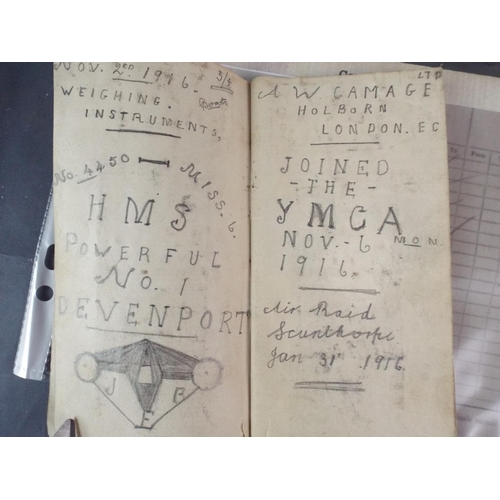 NOV. 2ND 1916. 3/4
WEIGHING.
INSTRUMENTS,
NO. 4450 — MISS. 6.
HMS
POWERFUL
NO. 1
DEVENPORT
J B
E
A W GAMAGE LTD
HOLBORN
LONDON. EC
JOINED
- THE -
YMCA
NOV. - 6 MON.
1916.
Air Raid
Scunthorpe
Jan 31 1916.